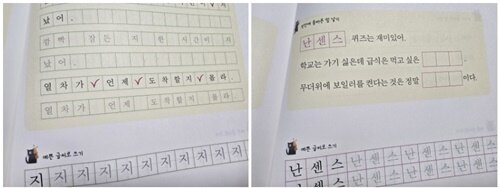 났어.
깜빡 잠든 지 한 시간이 지
났어.
열차가 언제 도착할지 몰라.
열차가 언제 도착할지 몰라.
예쁜 글씨로 쓰기
지 지 지 지 지 지 지 지 지 지
빈칸에 올바른 말 넣기
난센스 퀴즈는 재미있어.
학교는 가기 싫은데 급식은 먹고 싶은
무더위에 보일러를 켠다는 것은 정말 이다.
예쁜 글씨로 쓰기
난 센 스 난 센 스 난 센 스 난 센
난 센 스 난 센 스 난 센 스